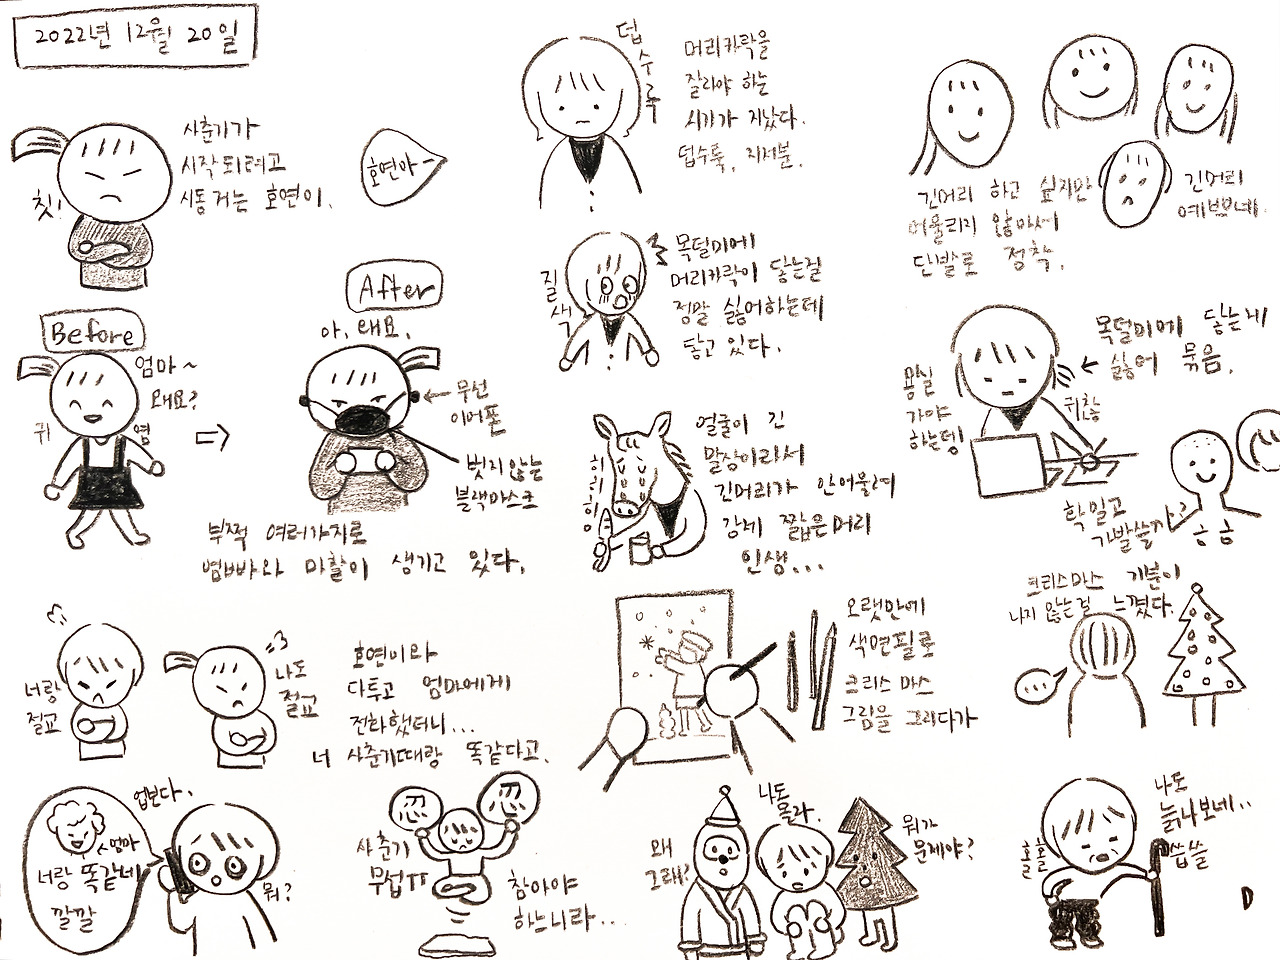 2022년 12월 20일
사춘기가
시작되려고
시동 거는 호연이.
칫!
호연아~
Before
엄마~
왜요?
귀
염
After
아, 왜요.
무선
이어폰
벗지 않는
블랙마스크
부쩍 여러가지로
엄빠와 마찰이 생기고 있다.
너랑
절교
나도
절교
호연이와
다투고 엄마에게
전화했더니...
너 사춘기때랑 똑같다고.
업보다.
엄마
너랑 똑같네
깔깔
뭐?
사춘기
무섭ㅠㅠ
忍 忍
참아야
하느니라...
덥수룩
머리카락을
잘라야 하는
시기가 지났다.
덥수룩, 지저분.
질색
목덜미에
머리카락이 닿는걸
정말 싫어하는데
닿고 있다.
히히힝
얼굴이 긴
말상이라서
긴머리가 안어울려
강제 짧은머리
인생...
오랫만에
색연필로
크리스마스
그림을 그리다가
왜
그래?
나도
몰라.
뭐가
문제야?
긴머리 하고 싶지만
어울리지 않아서
단발로 정착.
긴머리
예쁘네.
목덜미에 닿는게
싫어 묶음.
미용실
가야
하는데
귀찮
확 밀고
가발쓸까?
흠흠
크리스마스 기분이
나지 않는걸 느꼈다.
...
나도
늙나보네..
씁쓸
홀홀
D